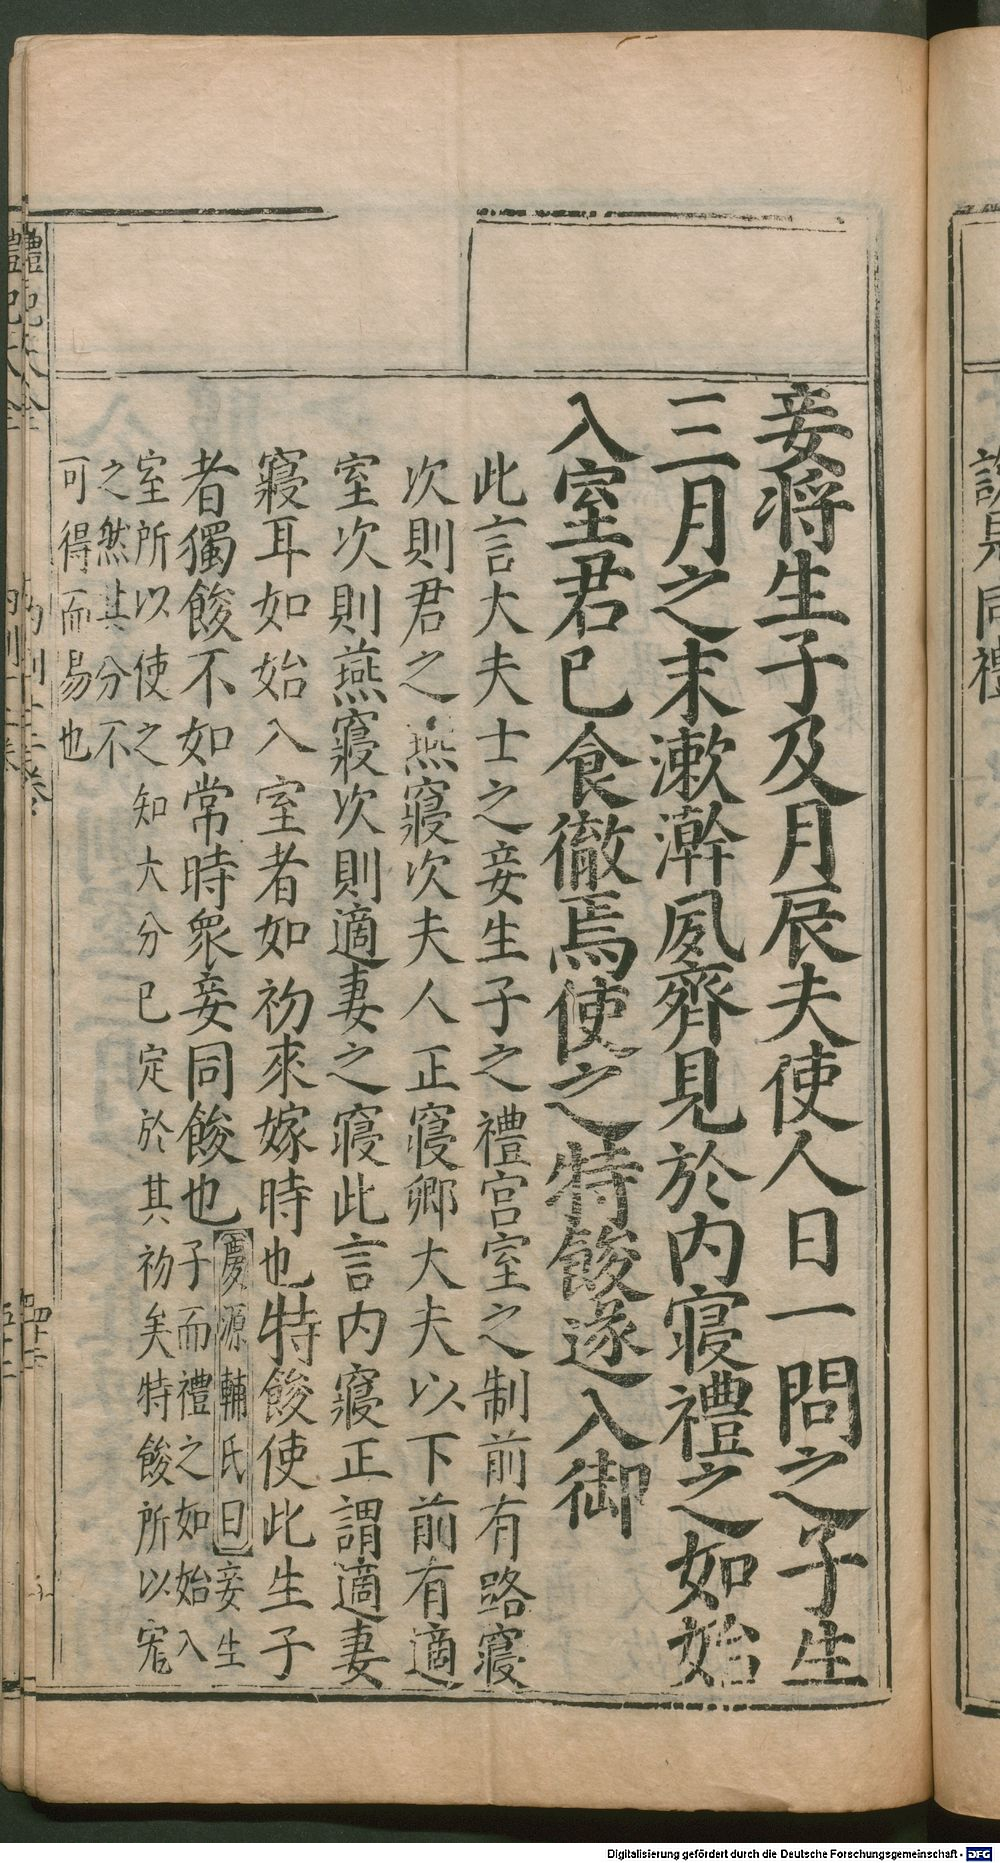 妾將生子及月辰夫使人日一問之子生
三月之末漱澣夙齊見於内寝禮之如始
入室君已食徹焉使之特餕遂入御
此言大夫士之妾生子之禮宫室之制前有路寢
次則君之燕寢次夫人正寢卿大夫以下前有適
室次則燕寢次則適妻之寢此言内寢正謂適妻
寢耳如始入室者如初來嫁時也特餕使此生子
者獨餕不如常時衆妾同餕也
慶源輔氏曰妾生
子而禮之如始入
室所以使之知大分已定於其初矣特餕所以寵
之然其分不
可得而易也
禮記大全
Digitalisierung gefördert durch die Deutsche Forschungsgemeinschaft - DFG